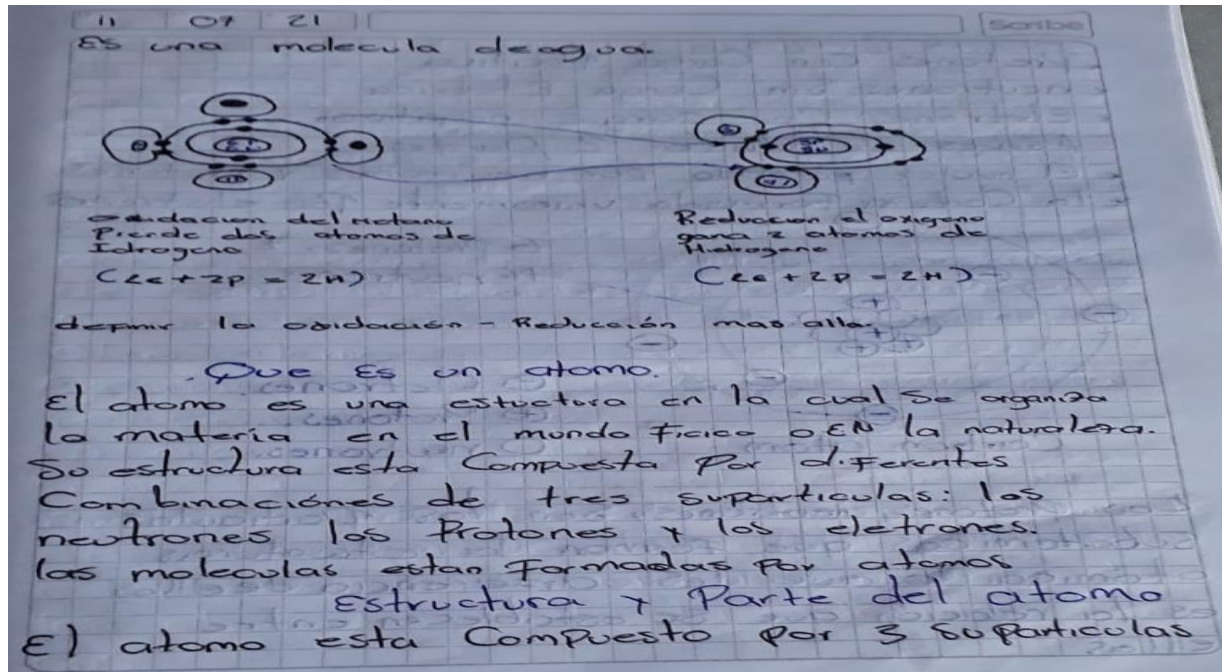 11 07 21 Scribe
Es una molecula deagua.
oxidacion del metano
Pierde dos atomos de
Idrogeno
(2e + 2p = 2H)
Reduccion el oxigeno
gana 2 atomos de
Hidrogeno
(2e + 2p = 2H)
definir la oxidación - Reducción mas alla.
Que Es un atomo.
El atomo es una estuctura en la cual se organiza
la materia en el mundo Ficico o EN la naturaleza.
Su estructura esta Compuesta Por diferentes
Combinaciónes de tres suparticulas: los
neutrones los Protones y los eletrones.
las moleculas estan Formadas Por atomos
Estructura y Parte del atomo
El atomo esta Compuesto Por 3 Suparticulas